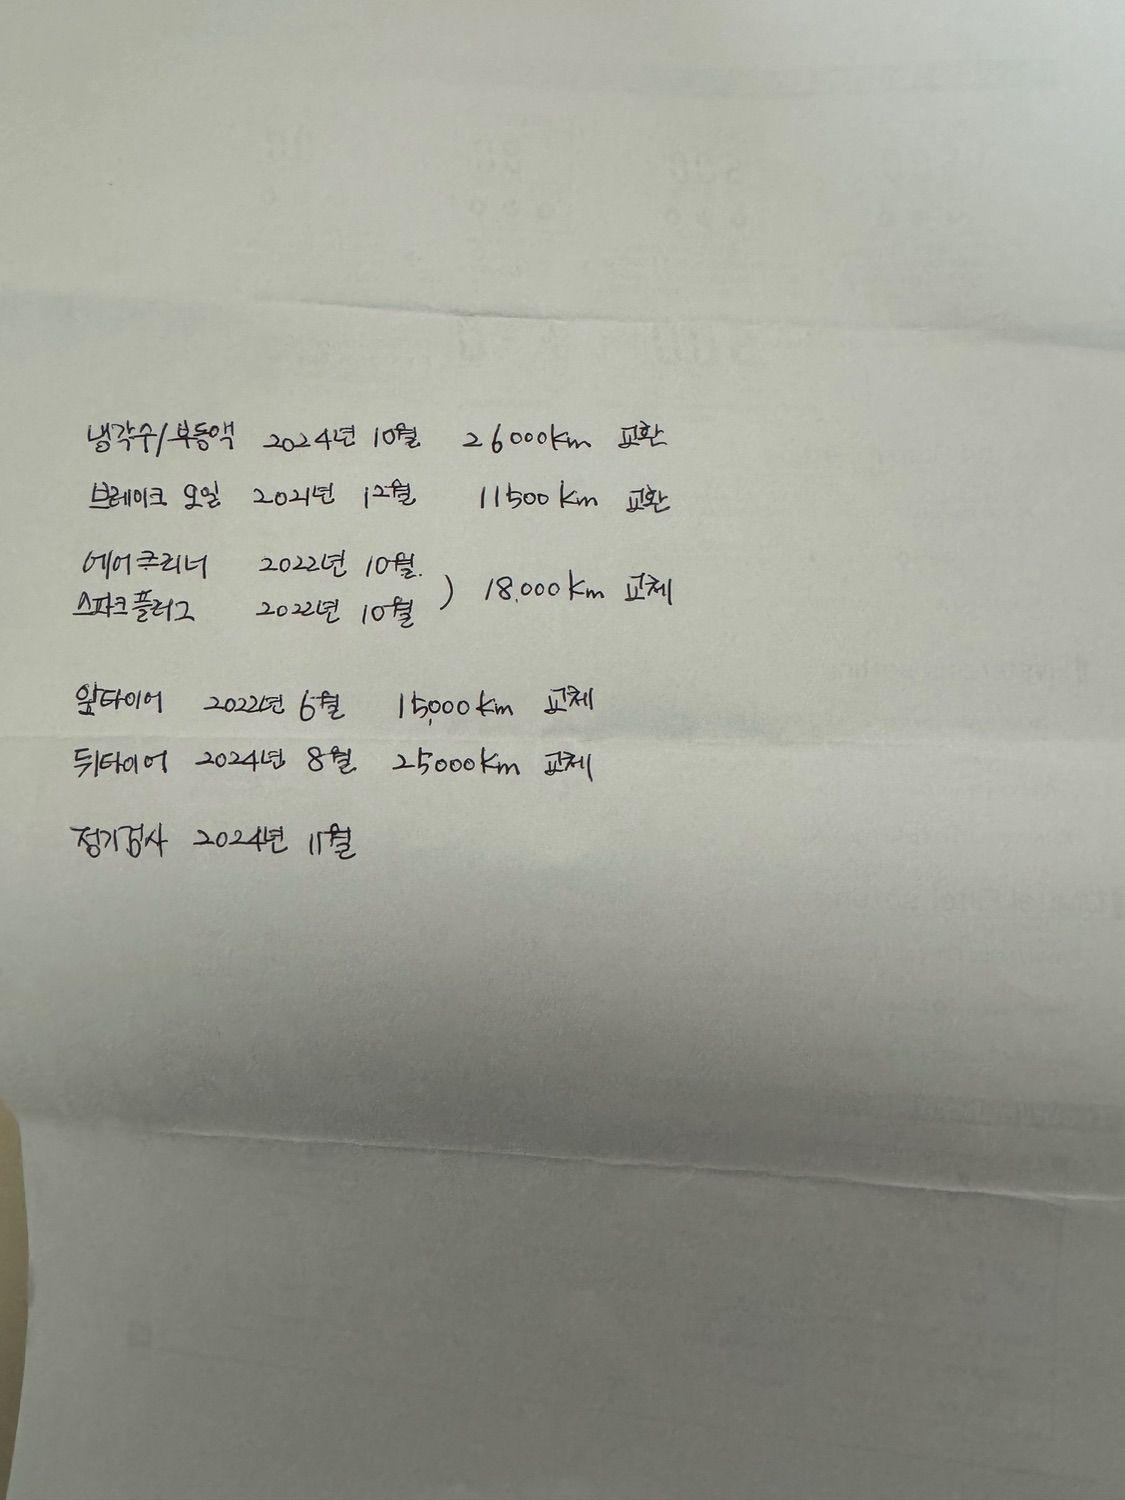 냉각수/부동액 2024년 10월 26000km 교환
브레이크 오일 2021년 12월 11500km 교환
에어크리너 2022년 10월.
) 18,000km 교체
스파크플러그 2022년 10월
앞타이어 2022년 6월 15,000km 교체
뒤타이어 2024년 8월 25000km 교체
정기검사 2024년 11월